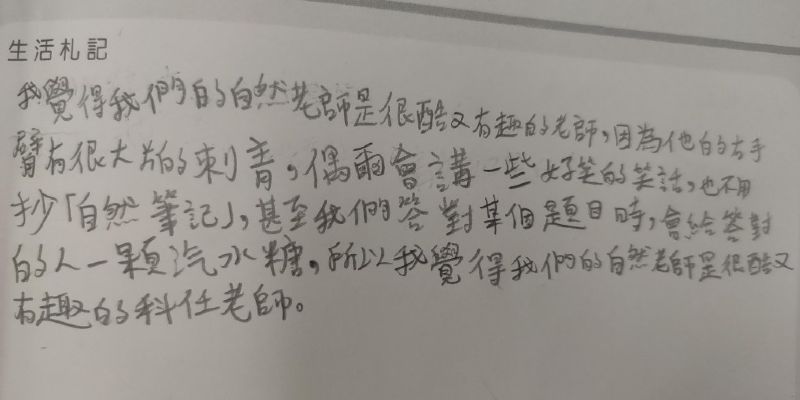 生活札記
我覺得我們的自然老師是很酷又有趣的老師，因為他的右手
臂有很大片的刺青，偶爾會講一些好笑的笑話，也不用
抄「自然筆記」，甚至我們答對某個題目時，會給答對
的人一顆汽水糖，所以我覺得我們的自然老師是很酷又
有趣的科任老師。